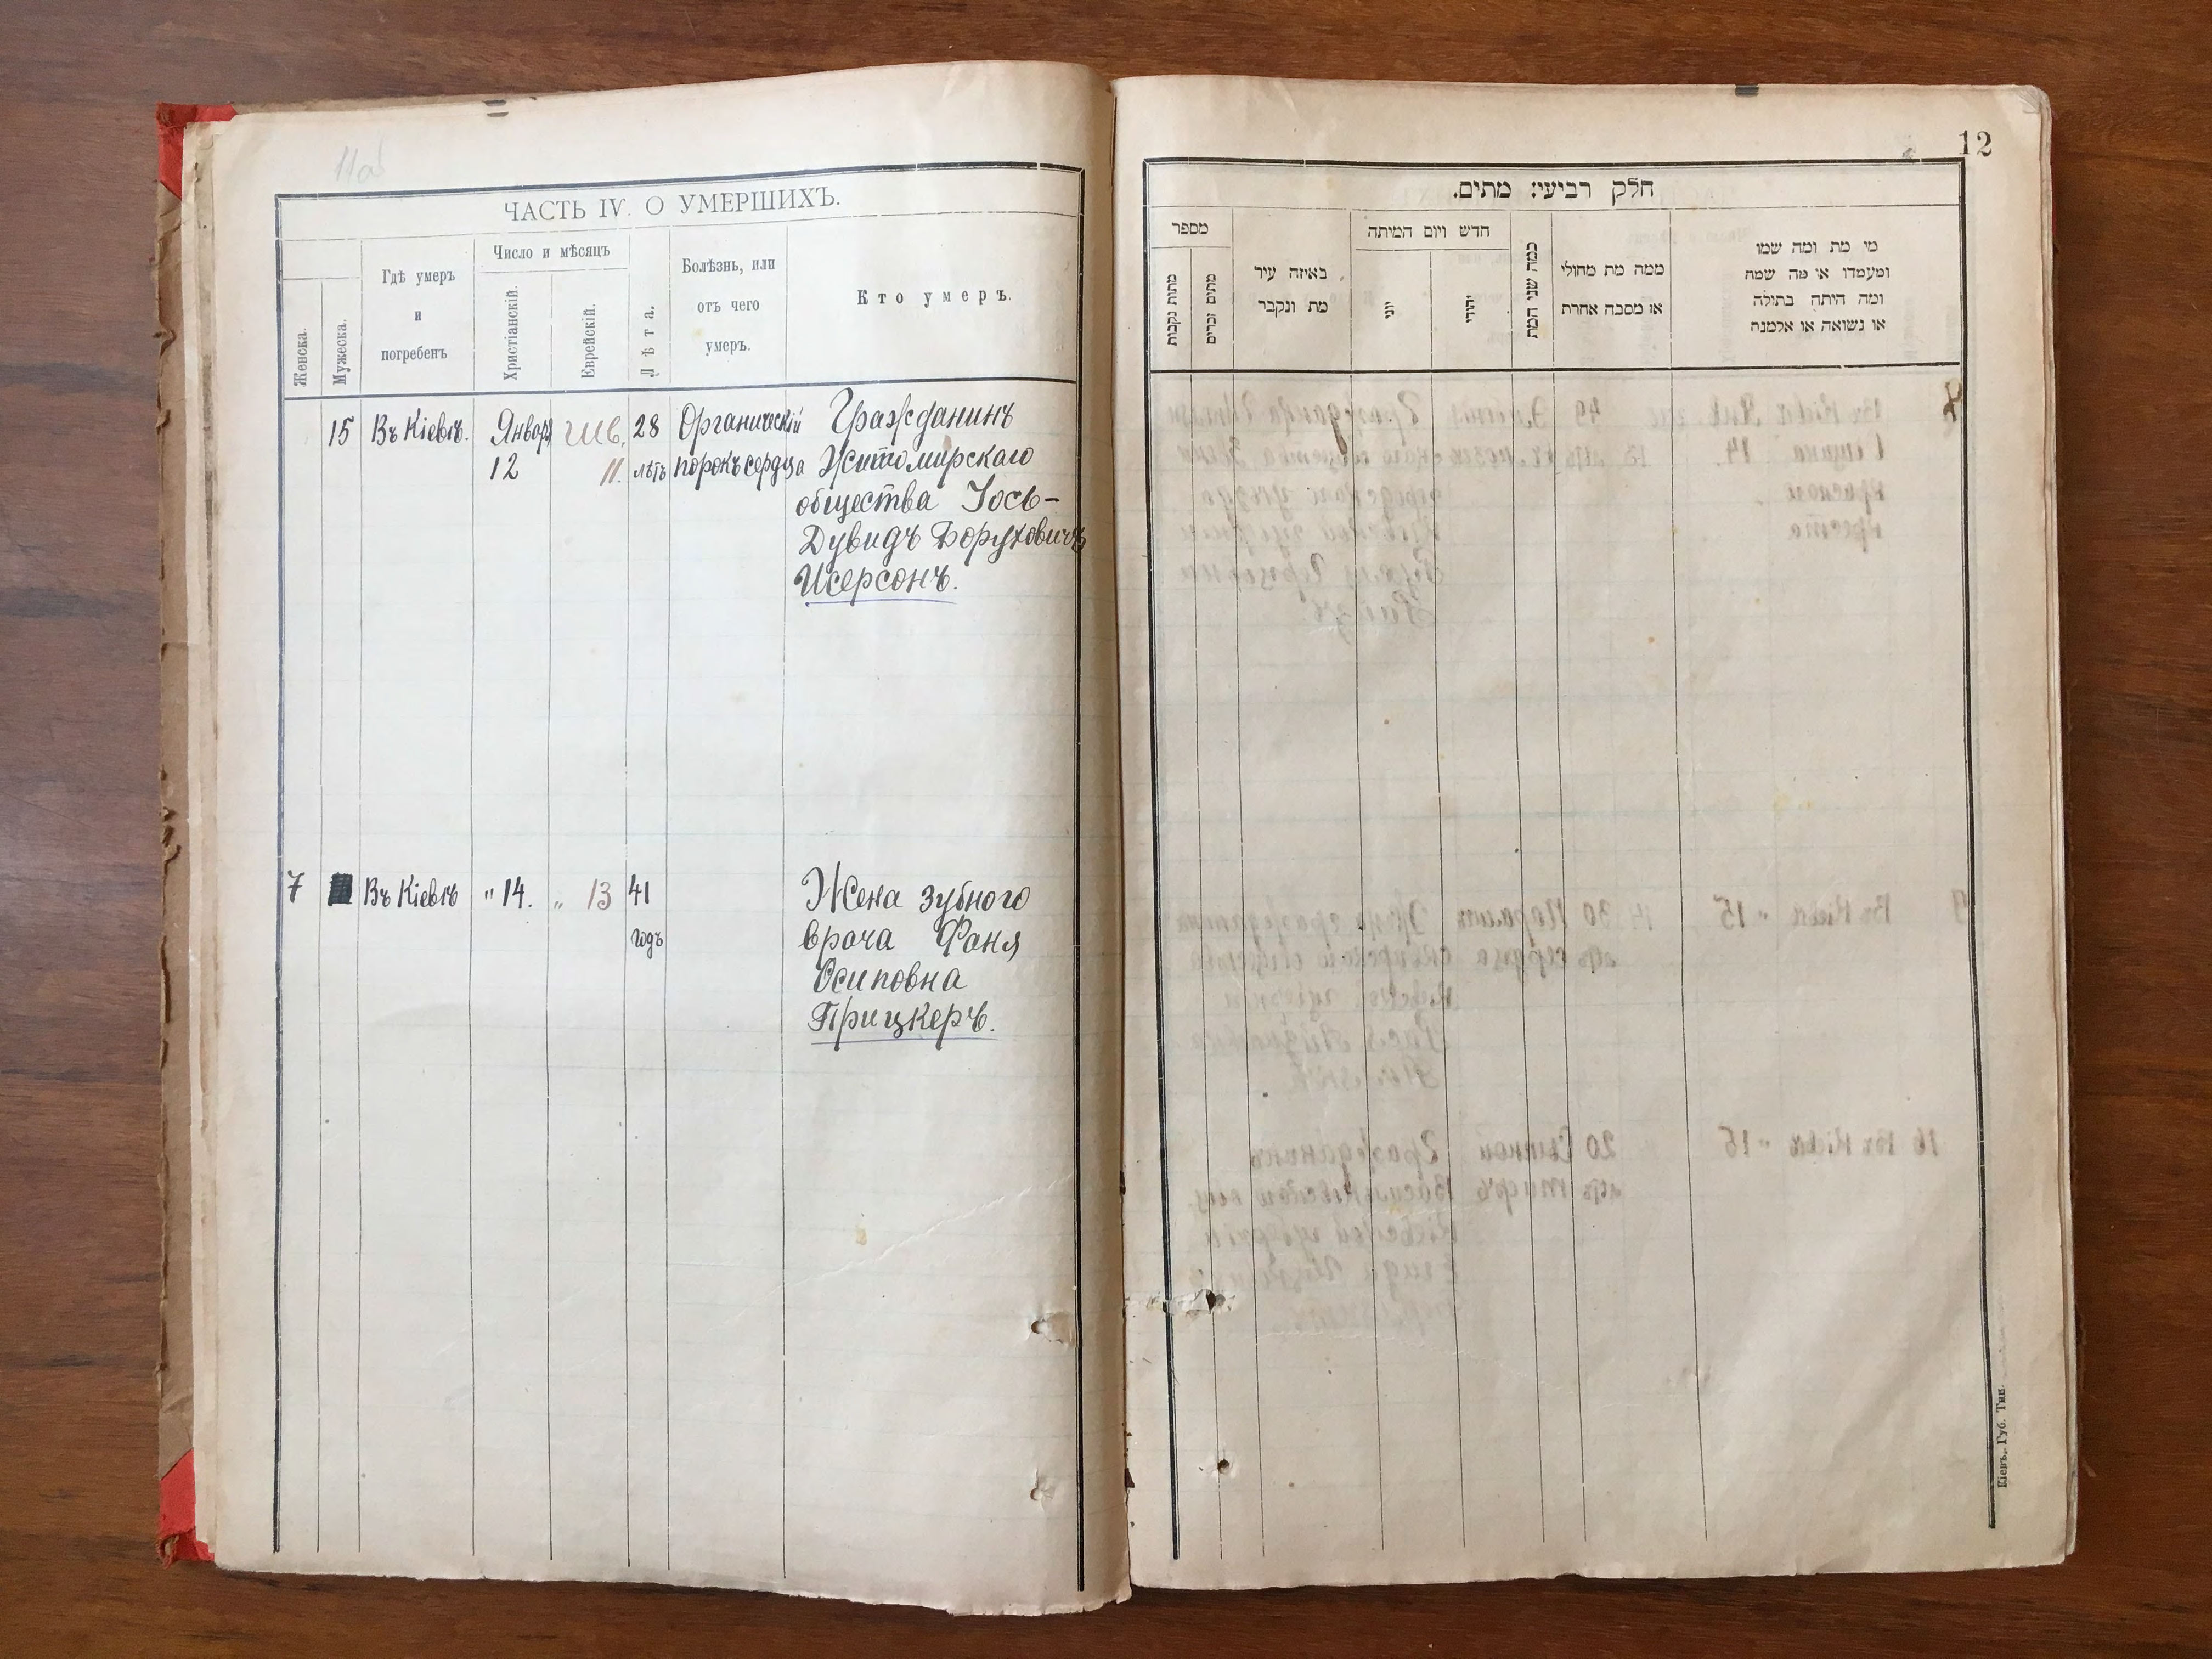 11об
ЧАСТЬ IV. О УМЕРШИХЪ.
Женска.
Мужеска.
Гдѣ умеръ
и
погребенъ
Число и мѣсяцъ
Христіанскій.
Еврейскій.
Лѣта.
Болѣзнь, или
отъ чего
умеръ.
Кто умеръ.
15 Въ Кіевѣ. Январ 12 Шв. 11. 28 лѣтъ
Органическій
порокъ сердца
Гражданинъ
Житомирскаго
общества Іось-
Дувидъ Борухович
Исерсонъ.
7 Въ Кіевѣ " 14. " 13 41 годъ
Жена зубного
врача Фаня
Осиповна
Прицкеръ.
12
חלק רביעי: מתים.
מספר
מתות נקבות
מתים זכרים
באיזה עיר
מת ונקבר
חדש ויום המיתה
יוני
יהודי
כמה שני המת
ממה מת מחולי
או מסבה אחרת
מי מת ומה שמו
ומעמדו או מה שמה
ומה היתה בתולה
או נשואה או אלמנה
Кіевъ, Губ. Тип.